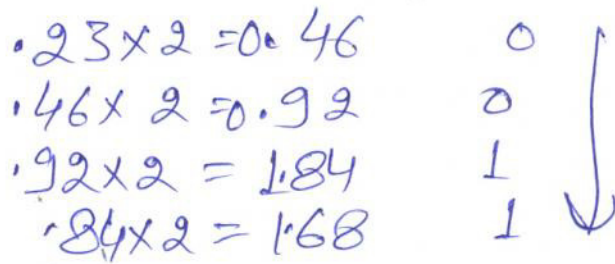 .23×2 =0.46 0
.46× 2 =0.92 0
.92×2 = 1.84 1
.84×2 = 1.68 1